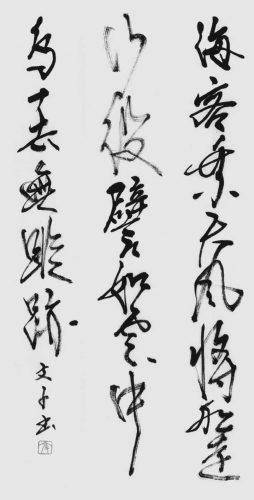 海客乘天風將船遠
行役譬如雲中
鳥一去無蹤跡
文 書